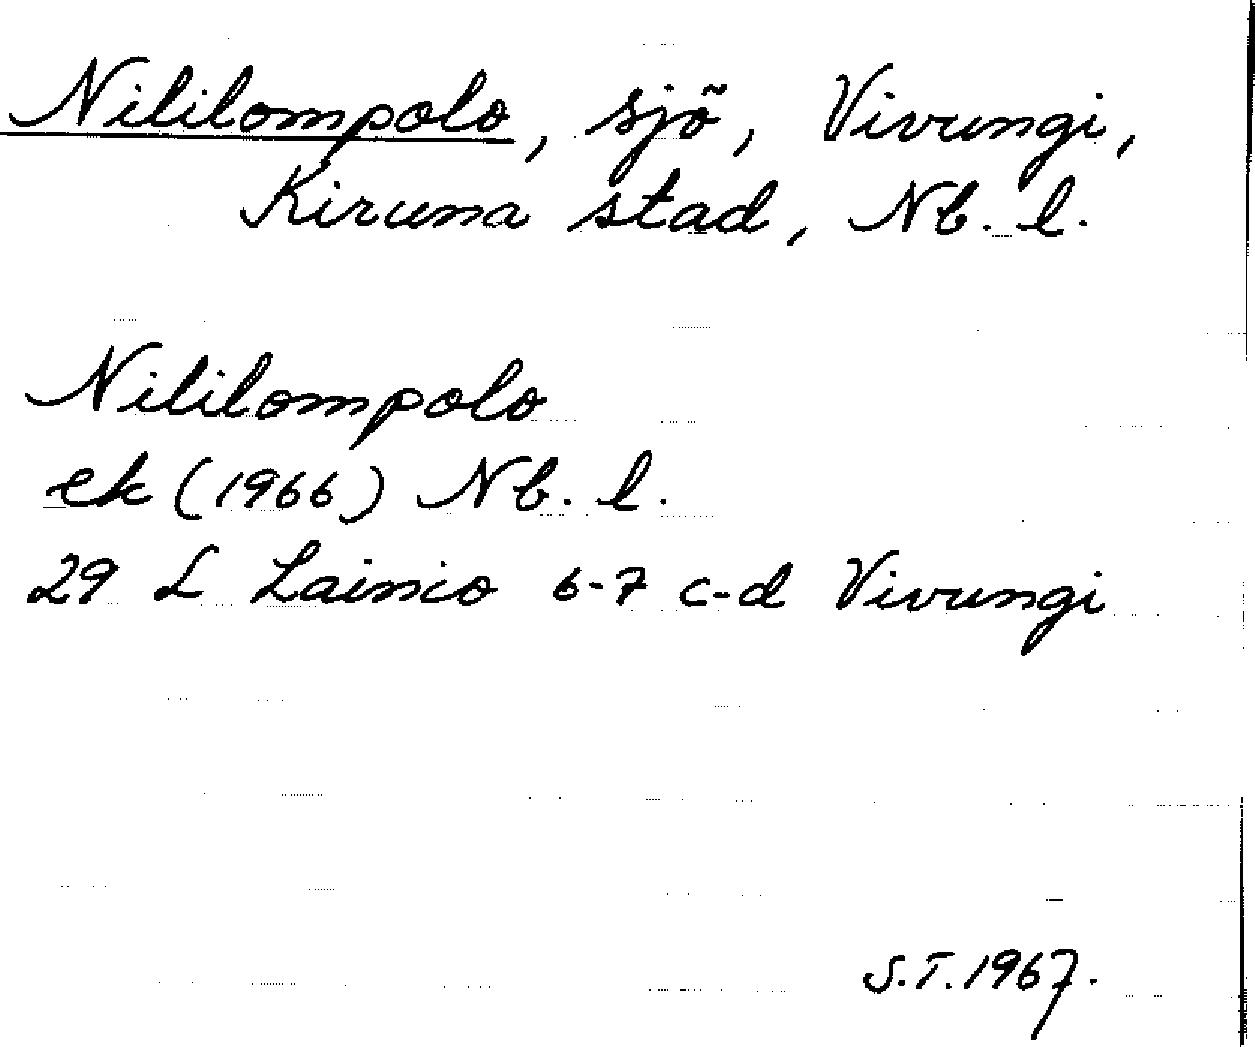 Nililompolo, sjö, Vivungi,
Kiruna stad, Nb. l.
Nililompolo
ek (1966) Nb. l.
29 L Lainio 6-7 c-d Vivungi
S.T. 1967.